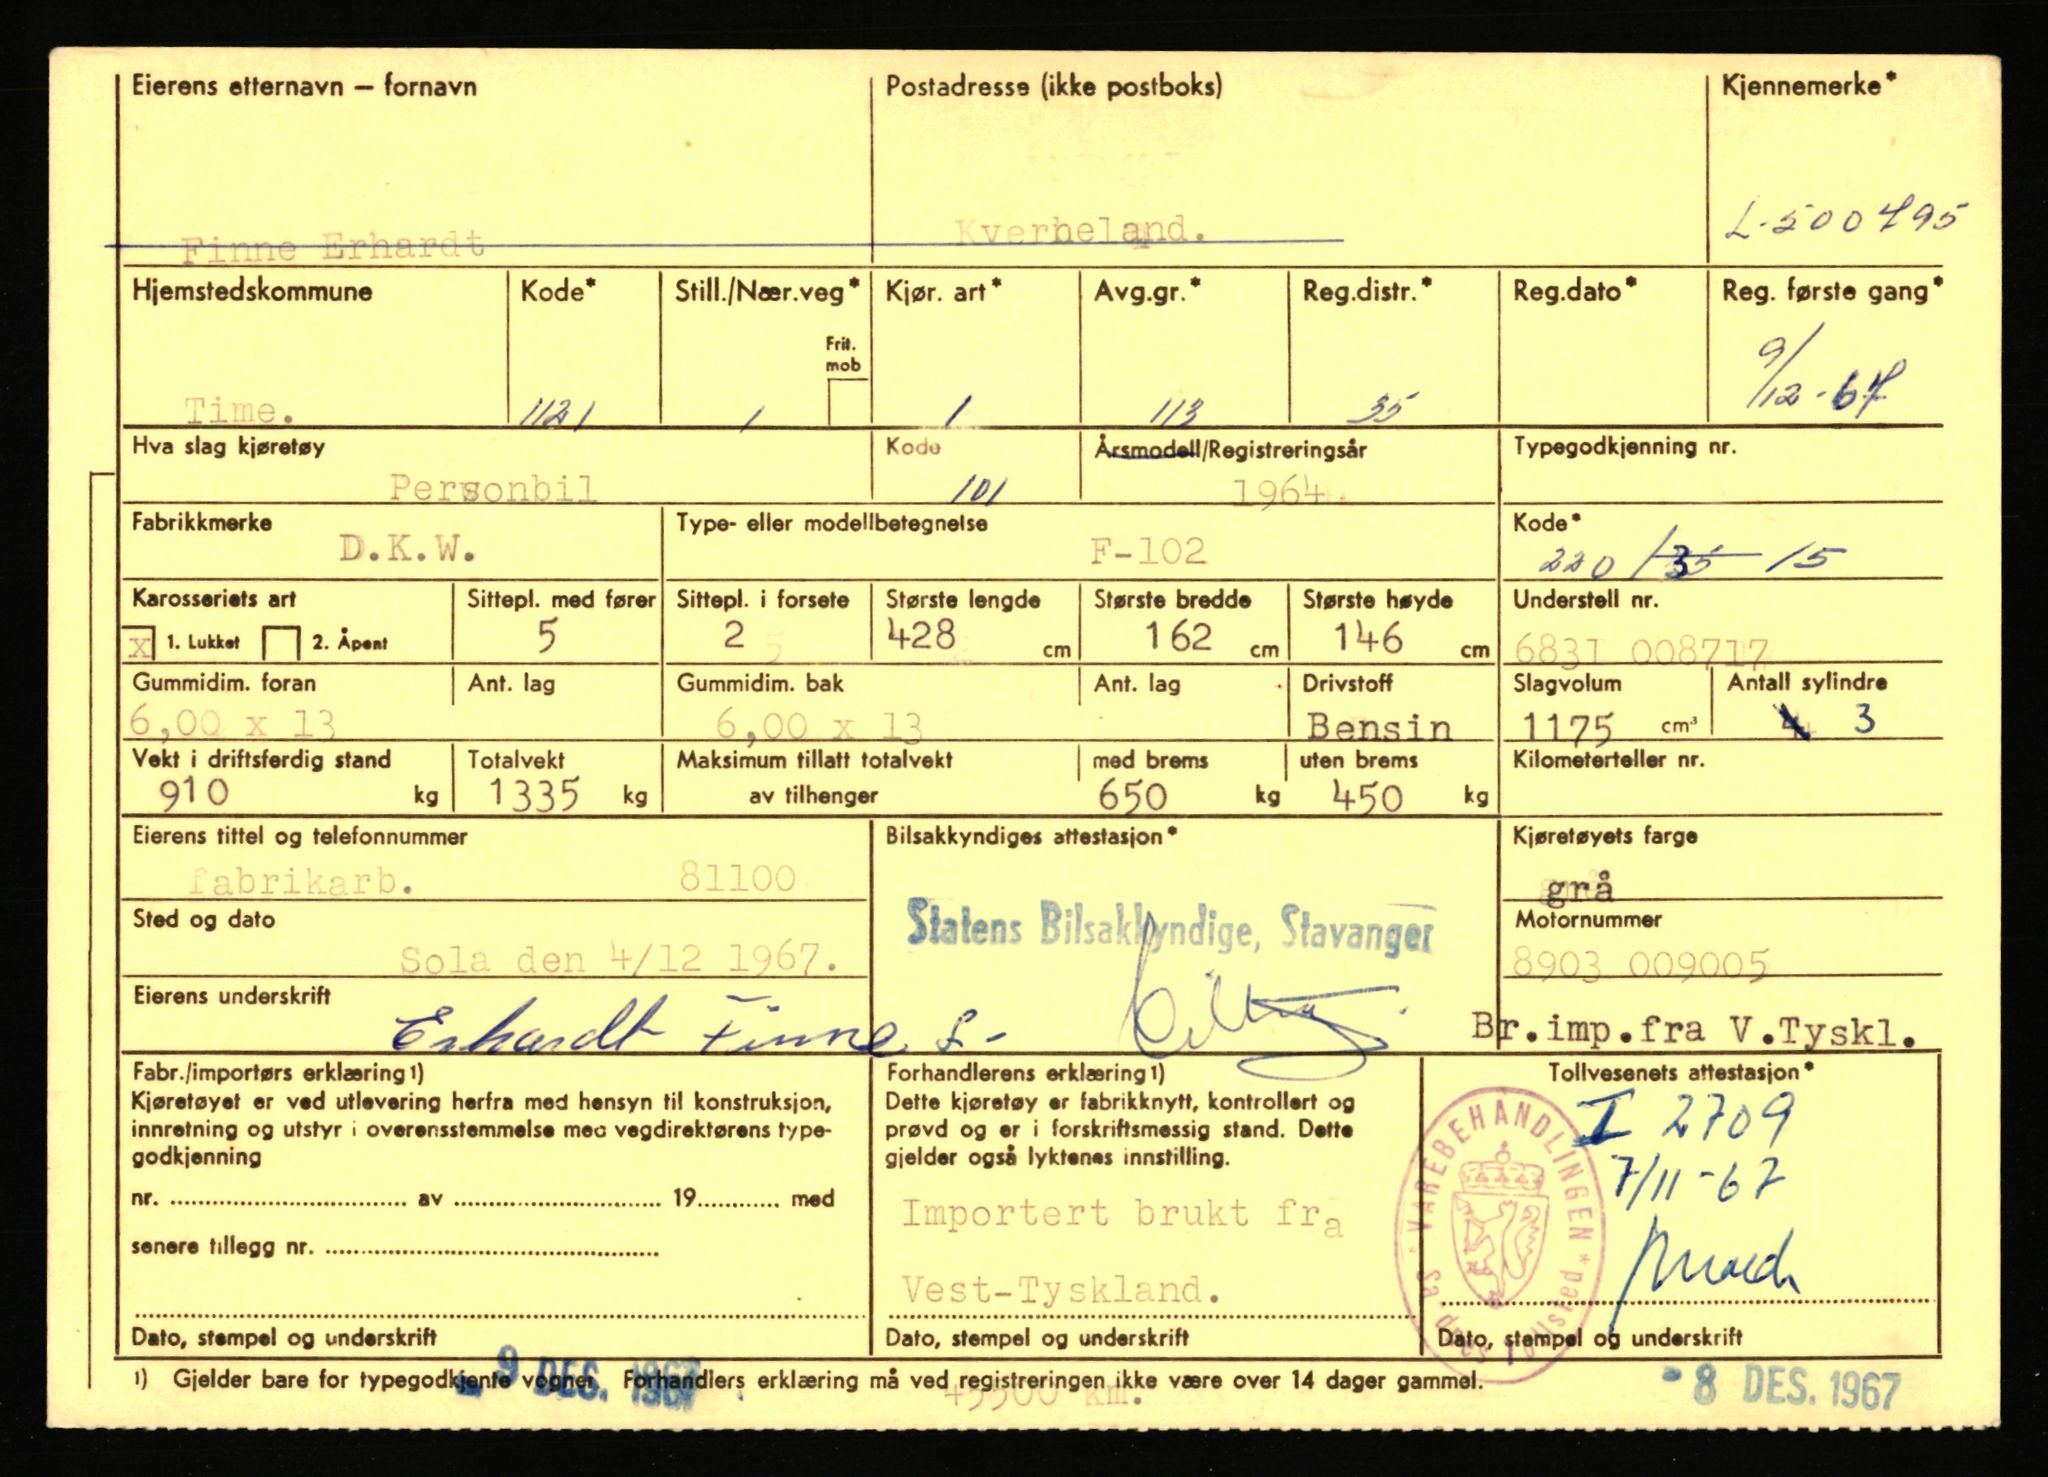 Eierens etternavn – fornavn
Postadresse (ikke postboks)
Kjennemerke*
Finne Erhardt
Kverneland.
L-500795
Hjemstedskommune
Kode*
Still./Nær.veg*
Kjør. art*
Avg.gr.*
Reg.distr.*
Reg.dato*
Reg. første gang*
Frit. mob
Time.
1121
1
1
113
35
9/12-67
Hva slag kjøretøy
Kode
Årsmodell/Registreringsår
Typegodkjenning nr.
Personbil
101
1964.
Fabrikkmerke
Type- eller modellbetegnelse
Kode*
D.K.W.
F-102
220/35 15
Karosseriets art
Sittepl. med fører
Sittepl. i forsete
Største lengde
Største bredde
Største høyde
Understell nr.
x 1. Lukket 2. Åpent
5
2
428 cm
162 cm
146 cm
6831 008717
Gummidim. foran
Ant. lag
Gummidim. bak
Ant. lag
Drivstoff
Slagvolum
Antall sylindre
6,00 x 13
6,00 x 13
Bensin
1175 cm³
4 3
Vekt i driftsferdig stand
Totalvekt
Maksimum tillatt totalvekt
med brems
uten brems
Kilometerteller nr.
910 kg
1335 kg
av tilhenger
650 kg
450 kg
Eierens tittel og telefonnummer
Bilsakkyndiges attestasjon*
Kjøretøyets farge
fabrikarb. 81100
grå
Sted og dato
Statens Bilsakkyndige, Stavanger
Motornummer
Sola den 4/12 1967.
8903 009005
Eierens underskrift
Erhardt Finne
Br.imp.fra V.Tyskl.
Fabr./importørs erklæring1)
Kjøretøyet er ved utlevering herfra med hensyn til konstruksjon,
innretning og utstyr i overensstemmelse med vegdirektørens type-
godkjenning
nr. ............ av ............ 19........ med
senere tillegg nr. ............
Dato, stempel og underskrift
Forhandlerens erklæring1)
Dette kjøretøy er fabrikknytt, kontrollert og
prøvd og er i forskriftsmessig stand. Dette
gjelder også lyktenes innstilling.
Importert brukt fra
Vest-Tyskland.
Dato, stempel og underskrift
Tollvesenets attestasjon*
I 2709
7/11-67
VAREBEHANDLINGEN
Dato, stempel og underskrift
1) Gjelder bare for typegodkjente vogner. Forhandlers erklæring må ved registreringen ikke være over 14 dager gammel.
- 9 DES. 1967
45500 km.
- 8 DES. 1967